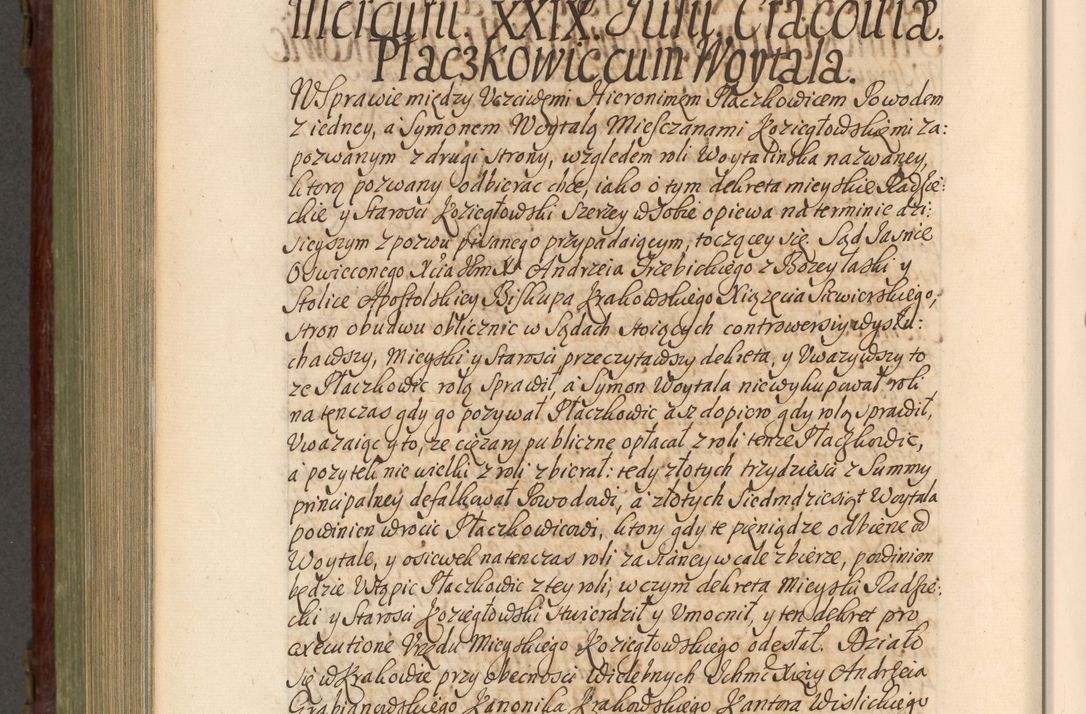 Mercurii. XXIX. Julii. Cracoviæ.
Płaczkowic cum Woytala.
W Sprawie między Uczciwemi Hieronimem Płaczkowicem Powodem
z iedney, a Symonem Woytalą Miesczanami Koziegłowskiemi za:
pozwanym z drugi strony, względem roli Woytalinska nazwaney,
ktorą pozwany odbierac chce, iako o tym dekreta mieyskie Radzie:
ckie y Starosci Koziegłowski szerzey w sobie opiewa na terminie dzi:
sieyszym z pozwu pisanego przypadaiącym, toczącey się. Sąd Jasnie
Oswieconego Xcia Jłm X. Andrzeia Trzebickiego z Bozey łaski y
Stolice Apostolskiey Biskupa Krakowskiego Xiązęcia Siewierskiego,
stron obudwu oblicznie w Sądach stoiących controwersiy wysłu:
chawszy, Mieyski y Starosci przeczytawszy dekreta, y Uwazywszy to
ze Płaczkowic rolą sprawił, a Symon Woytala niewykupował roli
na tenczas gdy go pozywał Płaczkowic asz dopiero gdy rolą sprawił,
Uwazaiąc y to, ze cięzary publiczne opłacał z roli tenze Płaczkowic,
a pozytek nie wielki z roli zbierał: tedy złotych trzydziesci z Summy
principalney defalkował Powodowi, a złotych siedmdziesiąt Woytala
powinien wrocic Płaczkowicowi, ktory gdy te pieniądze odbierze od
Woytale, y osiewek natenczas roli zasianey wcale zbierze, powinien
będzie Ustąpic Płaczkowic z tey roli, w czym dekreta Mieyski Radzie:
cki y Starosci Koziegłowski stwierdził y Umocnił, y ten dekret pro
executione Urzędu Mieyskiego Koziegłowskiego odesłał. Działo
się w Krakowie przy obecnosci Wielebnych Ichmc Xięzy Andrzeia
Grabianowskiego Kanonika Krakowskiego Kantora Wislickiego